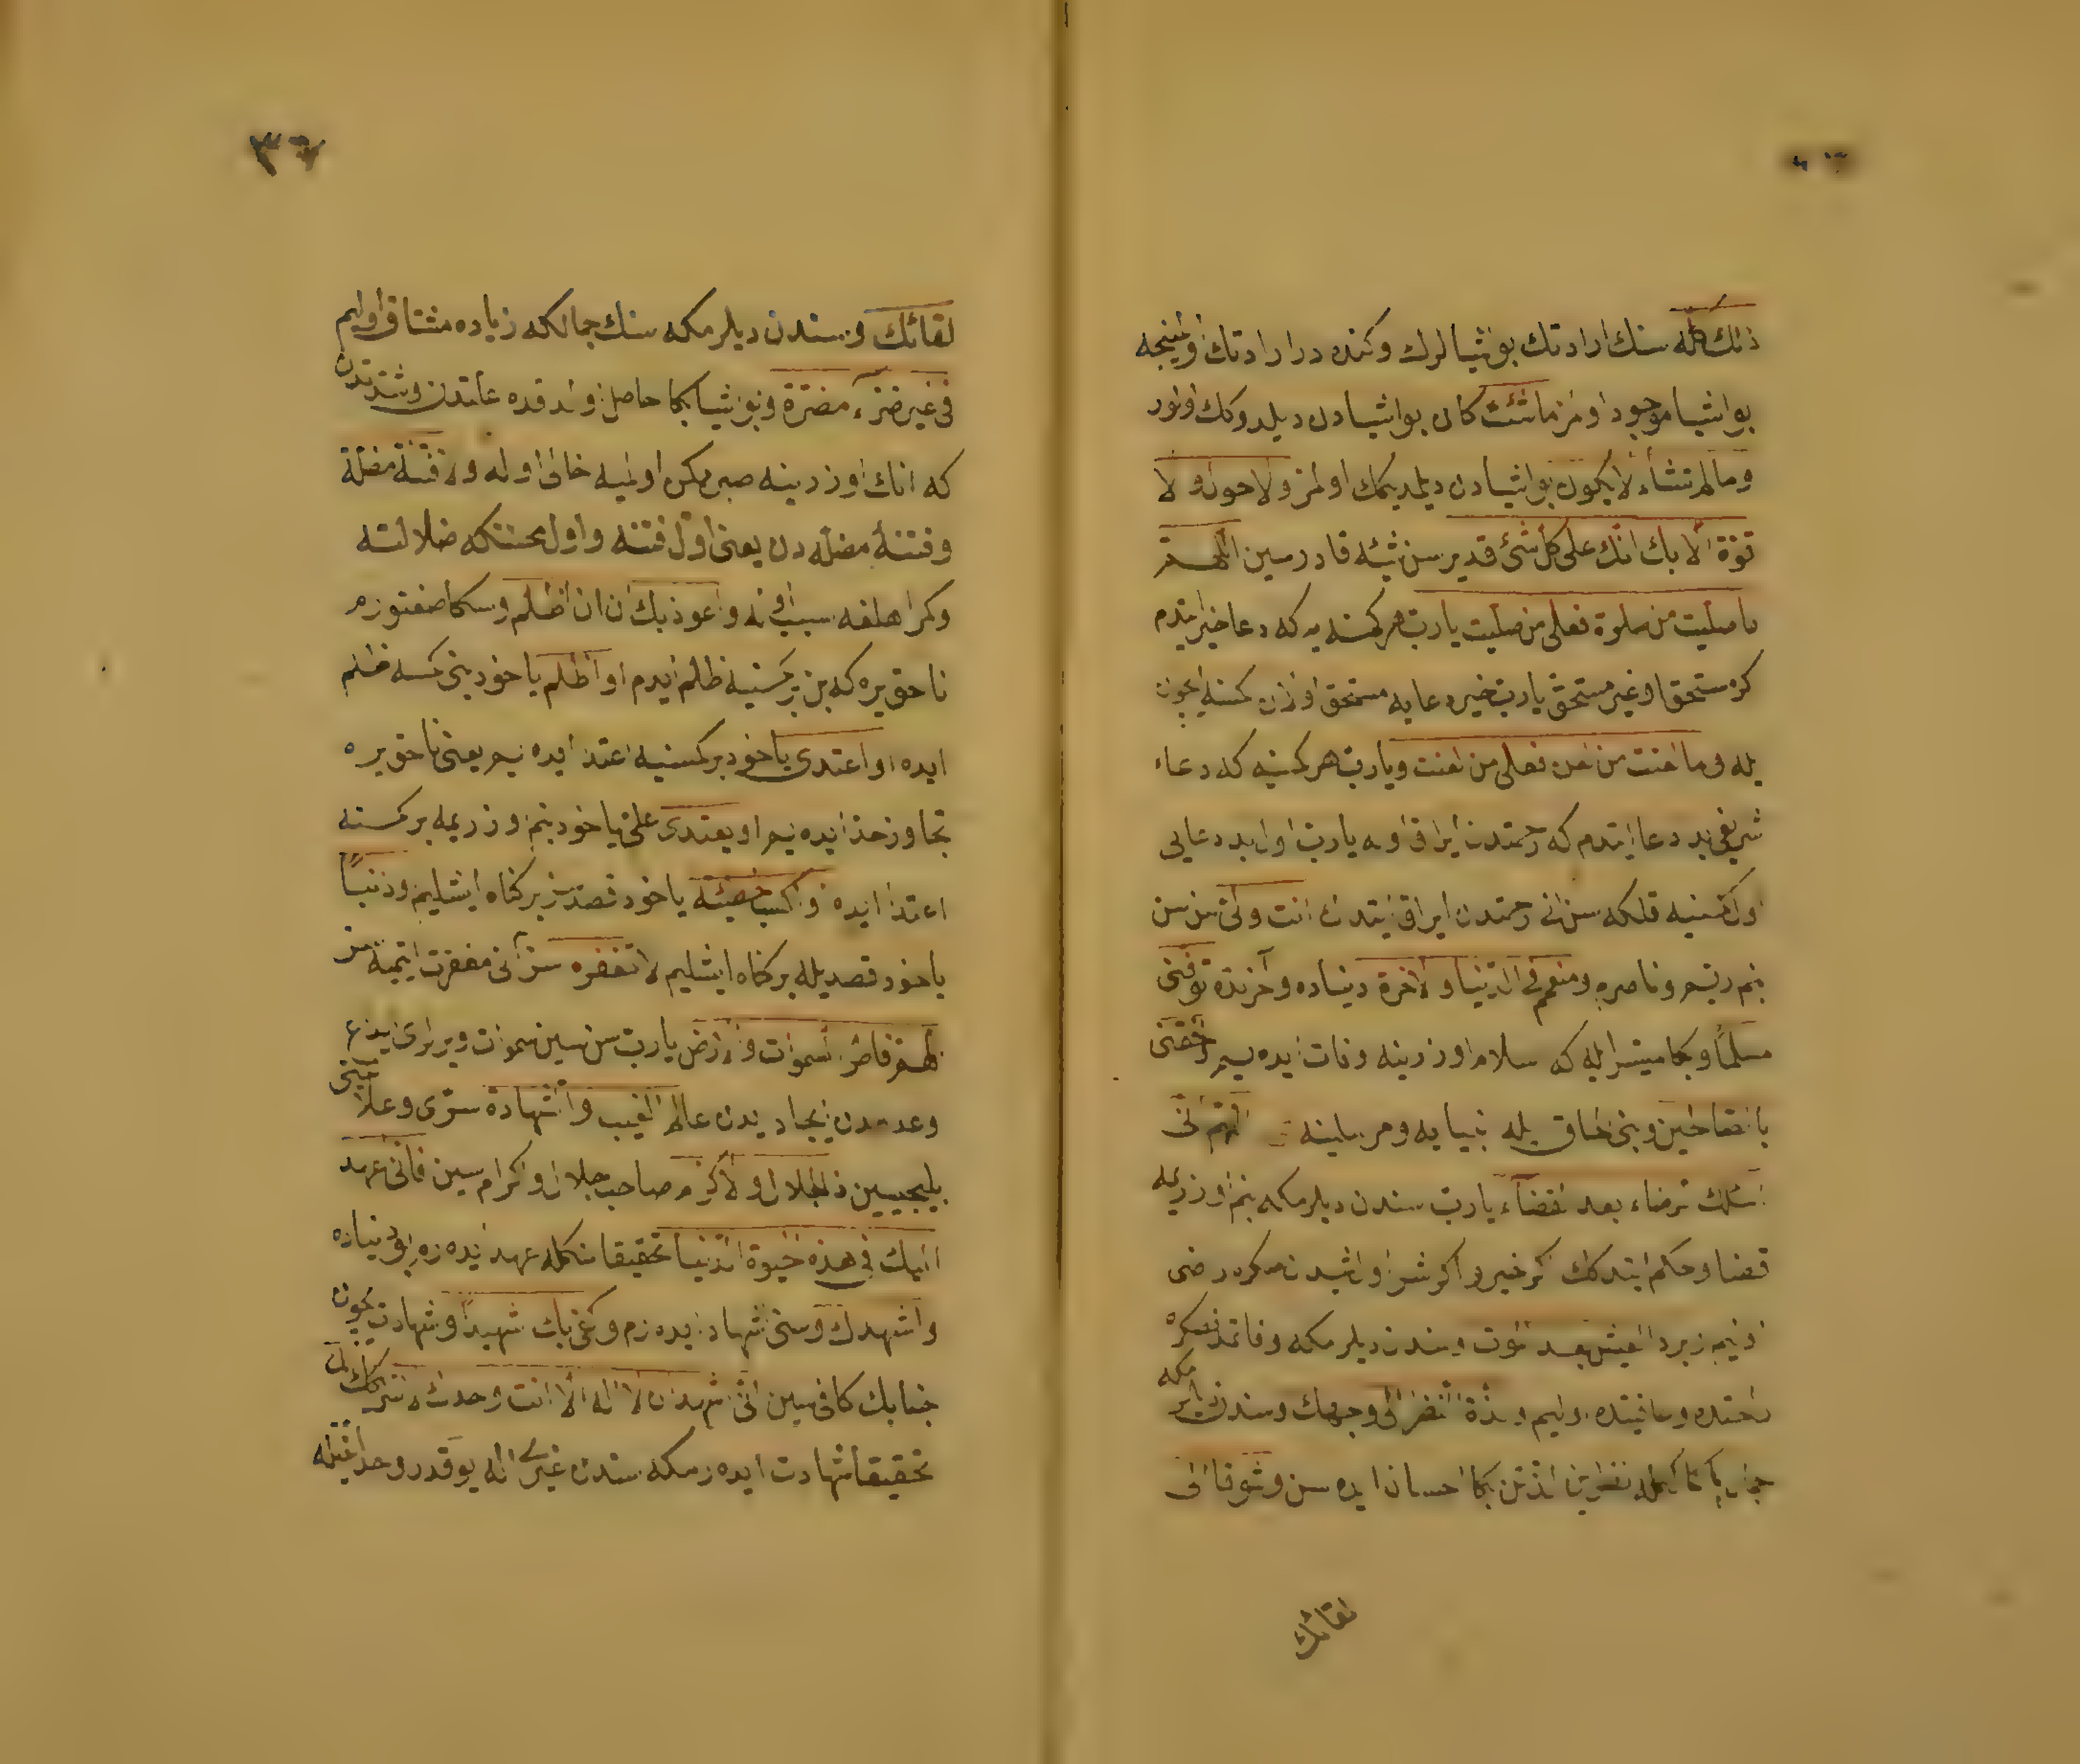 ذلك كله سنك ارادتك بو اشيالرك وكنده در ارادتك اولمينجه
بو اشيا موجود اولمز ما شئت كان بو اشيادن ديلدوكك اولور
وما لم تشاء لا يكون بو اشيادن ديلمديكك اولمز ولا حول ولا
قوة الا بك انك على كل شئ قدير سن شيئه قادرسين اللهم
ما صليت من صلوة فعلى من صليت يا رب هر كمسنه يه كه دعا خير ايتدم
كر مستحق او غير مستحق يا رب خير دعايه مستحق اولان كمسنه ايچون
يله وما لعنت من لعن فعلى من لعنت ويا رب هر كمسنه كه دعاء
شريفى بد دعا ايتدم كه رحمتدن ايراق اوله يا رب اول بد دعايى
اول كمسنيه قلكه سن انى رحمتدن ايراق ايتدك انت ولى سن سن
بنم ربم وناصرم ومنعم فى الدنيا والاخرة دنياده وآخرتده توفنى
مسلما وبكا ميسر ايله كه سلام اوزرينه وفات ايده يم والحقنى
بالصالحين وبنى الحاق ايله انبيايه ومرسلينه اللهم انى
اسئلك الرضاء بعد القضاء يا رب سندن ديلرمكه بنم اوزريمه
قضا وحكم ايتدكك كر خير و اكر شر اولن اشيدن صكره راضى
اولم وبرد العيش بعد الموت وسندن ديلرمكه وفاتمدنصكره
راحتده وعافيتده اوليم ولذة النظر الى وجهك وسندن ديلرمكه
جمال باكماله نظرك لذتن بكا احسان ايده سن وشوقا الى
لقائك
٣٦
لقائك وسندن ديلرمكه سنك جمالكه زياده مشتاق اوليم
فى غير ضراء مضرة وبو اشيا بكا حاصل اولدقده علتدن وشدتدن
كه انك اوزرينه صبر ممكن اولميه خالى اوله ولا فتنة مضلة
وفتنۀ مضله دن يعنى اول فتنه واول محنتكه ضلالته
وكمراهلغه سبب اوله واعوذ بك ان ان اظلم وسكا صغنورم
ناحق يره كه بن بر كمسنيه ظلم ايدم او اظلم ياخود بنى كمسه ظلم
ايده او اعتدى ياخود بر كمسنيه اعتدا ايده يم يعنى ناحق يره
تجاوز حد ايده يم او يعتدى على ياخود بنم اوزريمه بر كمسنه
اعتدا ايده او اكسب خطيئة ياخود قصدسز بر كناه ايشليم وذنبا
ياخود قصديله بر كناه ايشليم لا تغفره سن آنى مغفرت ايتميه سن
اللهم فاطر السموات والارض يا رب سن سين سموات ويرلرى يدع
وعدمدن ايجاد يدن عالم الغيب والشهادة سرى وعلانيتى
بيليجيسين ذا الجلال والاكرام صاحب جلال واكرام سين فانى اعهد
اليك فى هذه الحيوة الدنيا تحقيقا سنكله عهد ايده رم بو دنياده
واشهدك وسنى اشهاد ايده رم وكفى بك شهيدا وشهادت ايچون
جنابك كافى سين انى اشهد ان لا اله الا انت وحدك لا شريك لك
تحقيقا شهادت ايده رمكه سندن غيرى اله يوقدر وحدانيتله